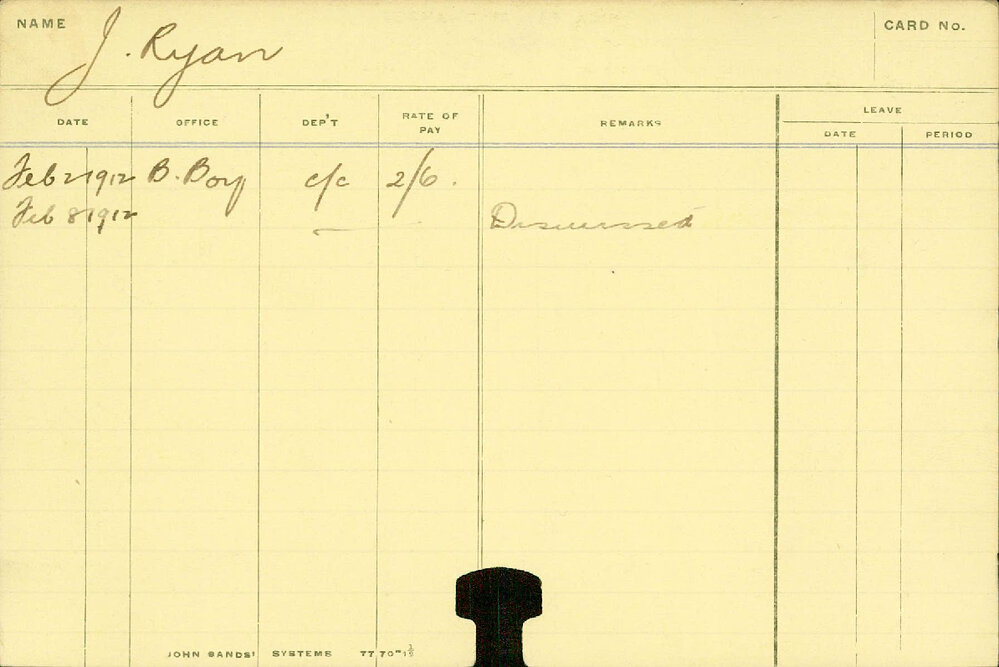 NAME J. Ryan CARD No.
DATE OFFICE DEP'T RATE OF PAY REMARKS LEAVE
DATE PERIOD
Feb 2 1912 B. Boy c/c 2/6.
Feb 8 1912 Dismissed
JOHN SANDS' SYSTEMS 77 70